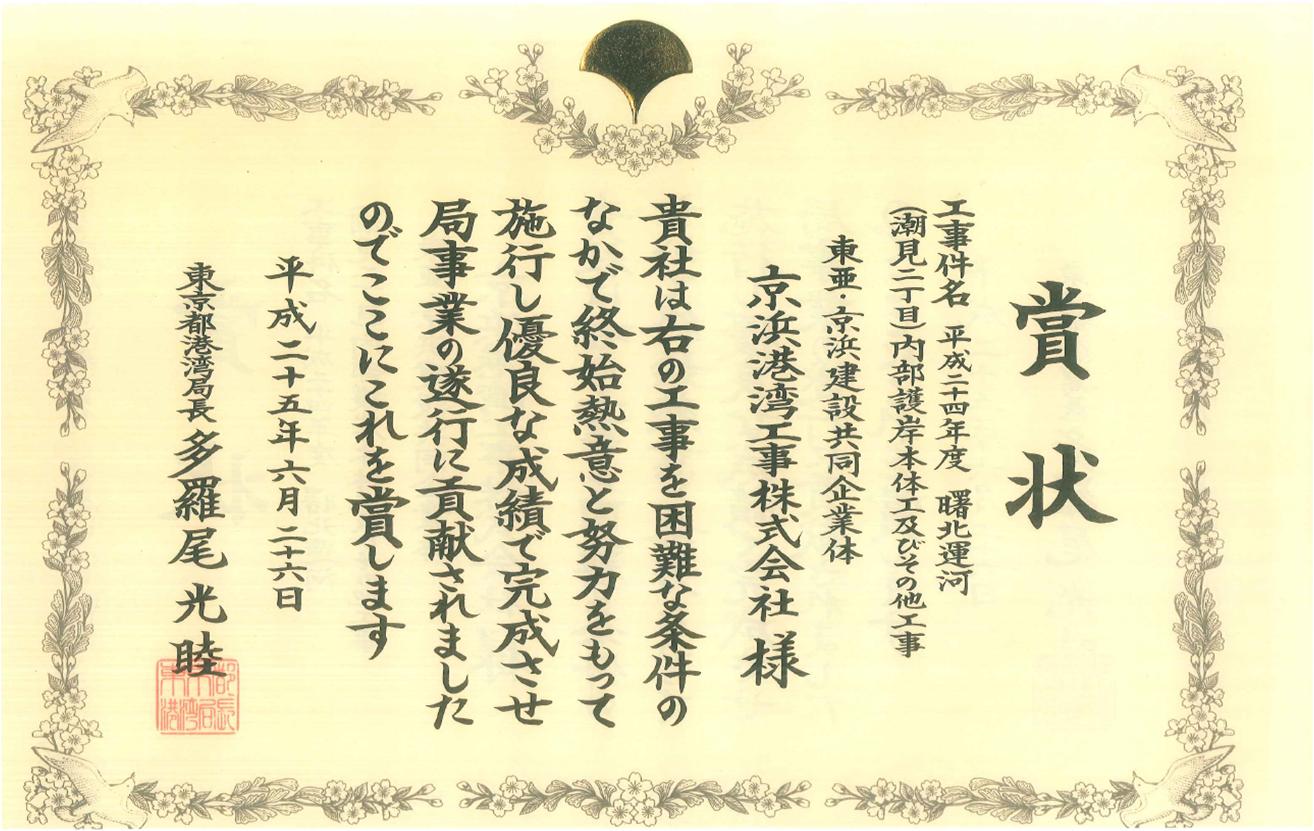 賞状
工事件名 平成二十四年度 曙北運河
(潮見二丁目)内部護岸本体工及びその他工事
東亜・京浜建設共同企業体
京浜港湾工事株式会社 様
貴社は右の工事を困難な条件の
なかで終始熱意と努力をもって
施行し優良な成績で完成させ
局事業の遂行に貢献されました
のでここにこれを賞します
平成二十五年六月二十六日
東京都港湾局長 多羅尾光睦
東京都港湾局長